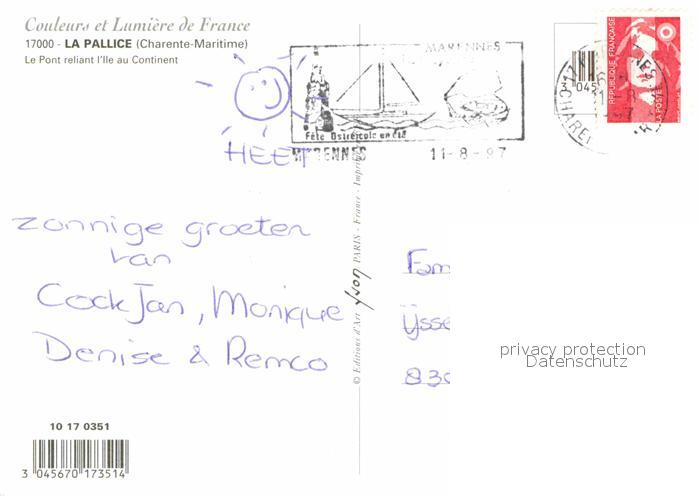 Couleurs et Lumière de France
17000 - LA PALLICE (Charente-Maritime)
Le Pont reliant l'Ile au Continent
MARENNES
Fête Ostréicole en été
MARENNES 11-8-97
3 045
RÉPUBLIQUE FRANÇAISE
LA POSTE
HEET
zonnige groeten
van
Cock Jan, Monique
Denise & Remco
© Editions d'Art yvon PARIS - France - Imprimé
Fam
IJsse
830
privacy protection
Datenschutz
10 17 0351
3 045670 173514